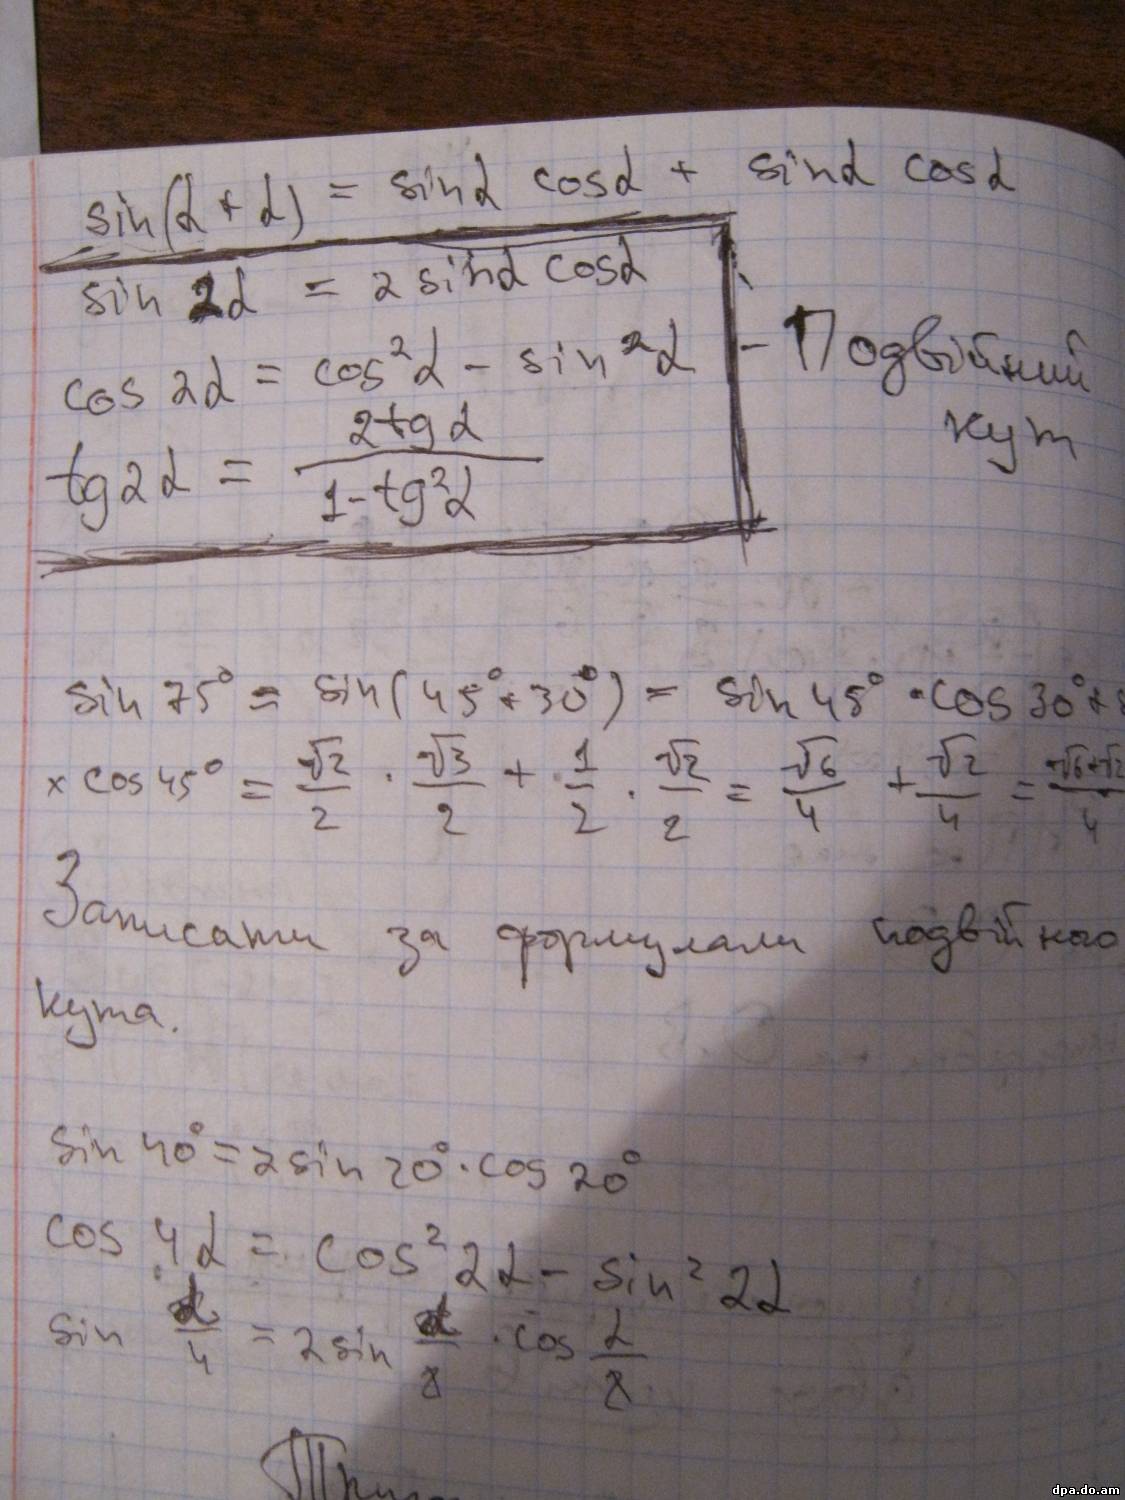 sin(α + α) = sinα cosα + sinα cosα
sin 2α = 2 sinα cosα
cos 2α = cos²α - sin²α
- Подвійний
кут
tg2α = 2tgα / 1-tg²α
sin 75° = sin(45°+30°) = sin 45° · cos 30° +
× cos 45° = √2/2 · √3/2 + 1/2 · √2/2 = √6/4 + √2/4 = √6+√2/4
Записати за формулами подвійного
кута.
sin 40° = 2 sin 20° · cos 20°
cos 4α = cos² 2α - sin² 2α
sin α/4 = 2 sin α/8 · cos α/8
dpa.do.am